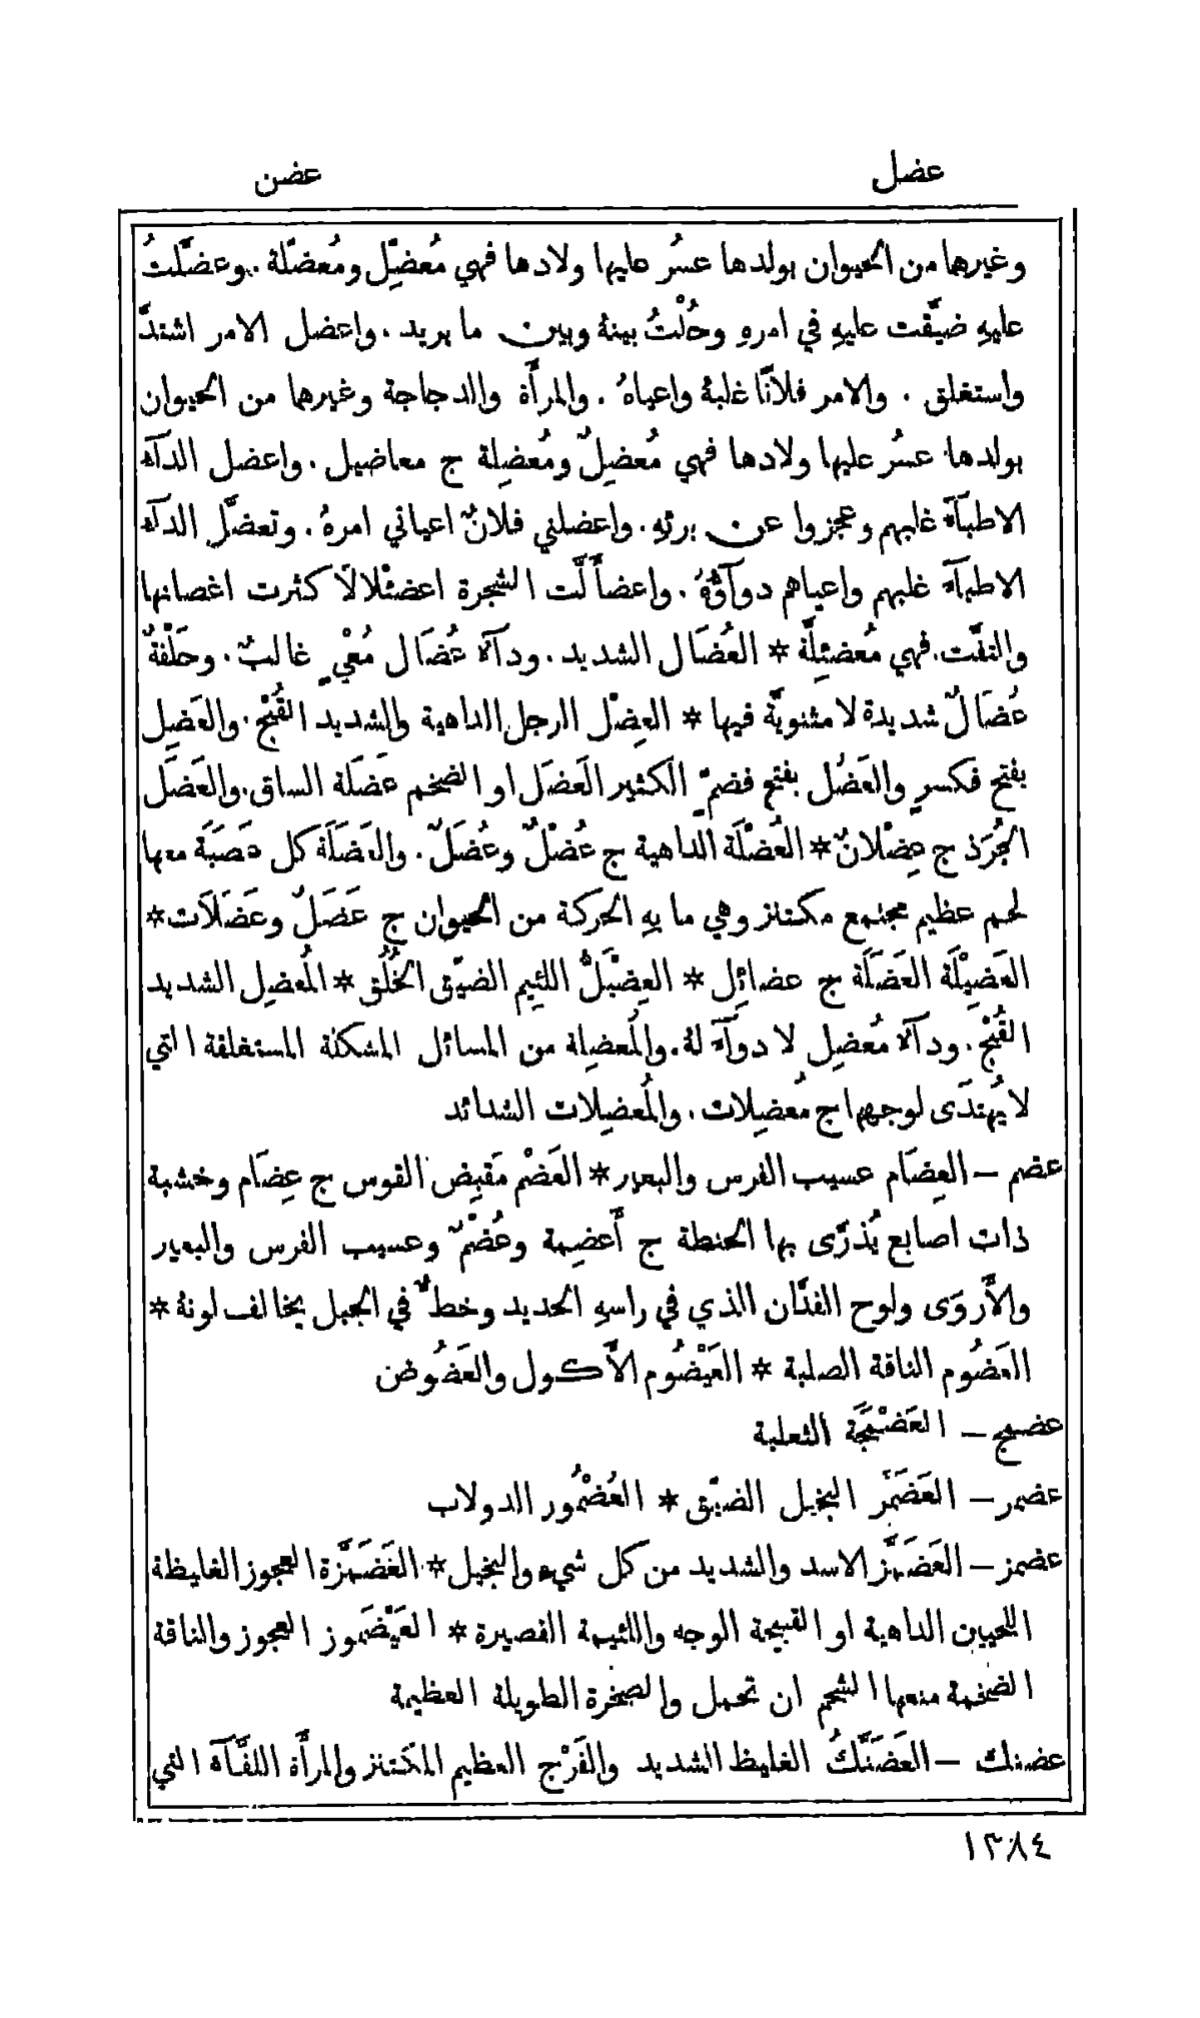 عضل
عضن
وغيرها من الحيوان بولدها عسُر عليها ولادها فهي مُعضِّل ومُعضّلة . وعضَّلتُ
عليهِ ضيَّقت عليهِ في امرهِ وحُلْتُ بينهُ وبين ما يريد . واعضل الامر اشتدَّ
واستغلق . والامر فلانًا غلبهُ واعياهُ . والمرأَة والدجاجة وغيرها من الحيوان
بولدها عسُر عليها ولادها فهي مُعضِلٌ ومُعضِلة ج معاضيل . واعضل الدآه
الاطبآءَ غلبهم وعجزوا عن برئهِ . واعضلني فلانٌ اعياني امرهُ . وتعضَّل الدآء
الاطبآء غلبهم واعياهم دوآؤهُ . واعضأَلَّت الشجرة اعضئْلالًا كثرت اغصانها
والتفَّت فهي مُعضئِلَّة * العُضَال الشديد . ودآء عُضَال مُعْيٍ غالبٌ . وحَلْفةٌ
عُضَالٌ شديدة لا مثنويَّة فيها * العِضْل الرجل الداهية والشديد القُبْح . والعَضِل
بفتح فكسرٍ والعَضُل بفتح فضمٍّ الكثير العَضَل او الضخم عَضَلة الساق . والعَضَل
الجُرَذ ج عِضْلانٌ * العُضْلَة الداهية ج عُضْلٌ وعُضَلٌ . والعَضَلَة كل عَصَبَة معها
لحم عظيم مجتمع مكتنز وهي ما بهِ الحركة من الحيوان ج عَضَلٌ وعَضَلَات *
العَضِيْلَة العَضَلَة ج عضائِل * العِضْبَلُّ اللئِيم الضيّق الخُلُق * المُعضِل الشديد
القُبْح . ودآء مُعضِل لا دوآء لهُ . والمُعضِلة من المسائل المشكلة المستغلقة التي
لا يُهتدَى لوجهها ج مُعضِلات . والمُعضِلات الشدائد
عضم – العِضَام عسيب الفرس والبعير * العَضْم مَقبِض القوس ج عِضَام وخشبة
ذات اصابع يُذرَّى بها الحنطة ج أَعضِمة وعُضُمٌ وعسيب الفرس والبعير
والأَروَى ولوح الفدَّان الذي في راسهِ الحديد وخطٌّ في الجبل يخالف لونهُ *
العَضُوم الناقة الصلبة * العَيْضُوم الأَكول والعَضُوض
عضمج – العَضْمَجَة الثعلبة
عضمر – العَضَمَّر البخيل الضيّق * العُضْمُور الدولاب
عضمز – العَضَمَّز الاسد والشديد من كل شيء والبخيل * العَضَمَّزة العجوز الغليظة
اللحيين الداهية او القبيحة الوجه واللئيمة القصيرة * العَيْضَموز العجوز والناقة
الضخمة منعها الشحم ان تحمل والصخرة الطويلة العظيمة
عضنك – العَضَنَّكُ الغليظ الشديد والفَرْج العظيم المكتنز والمرأَة اللفَّآء التي
١٣٨٤